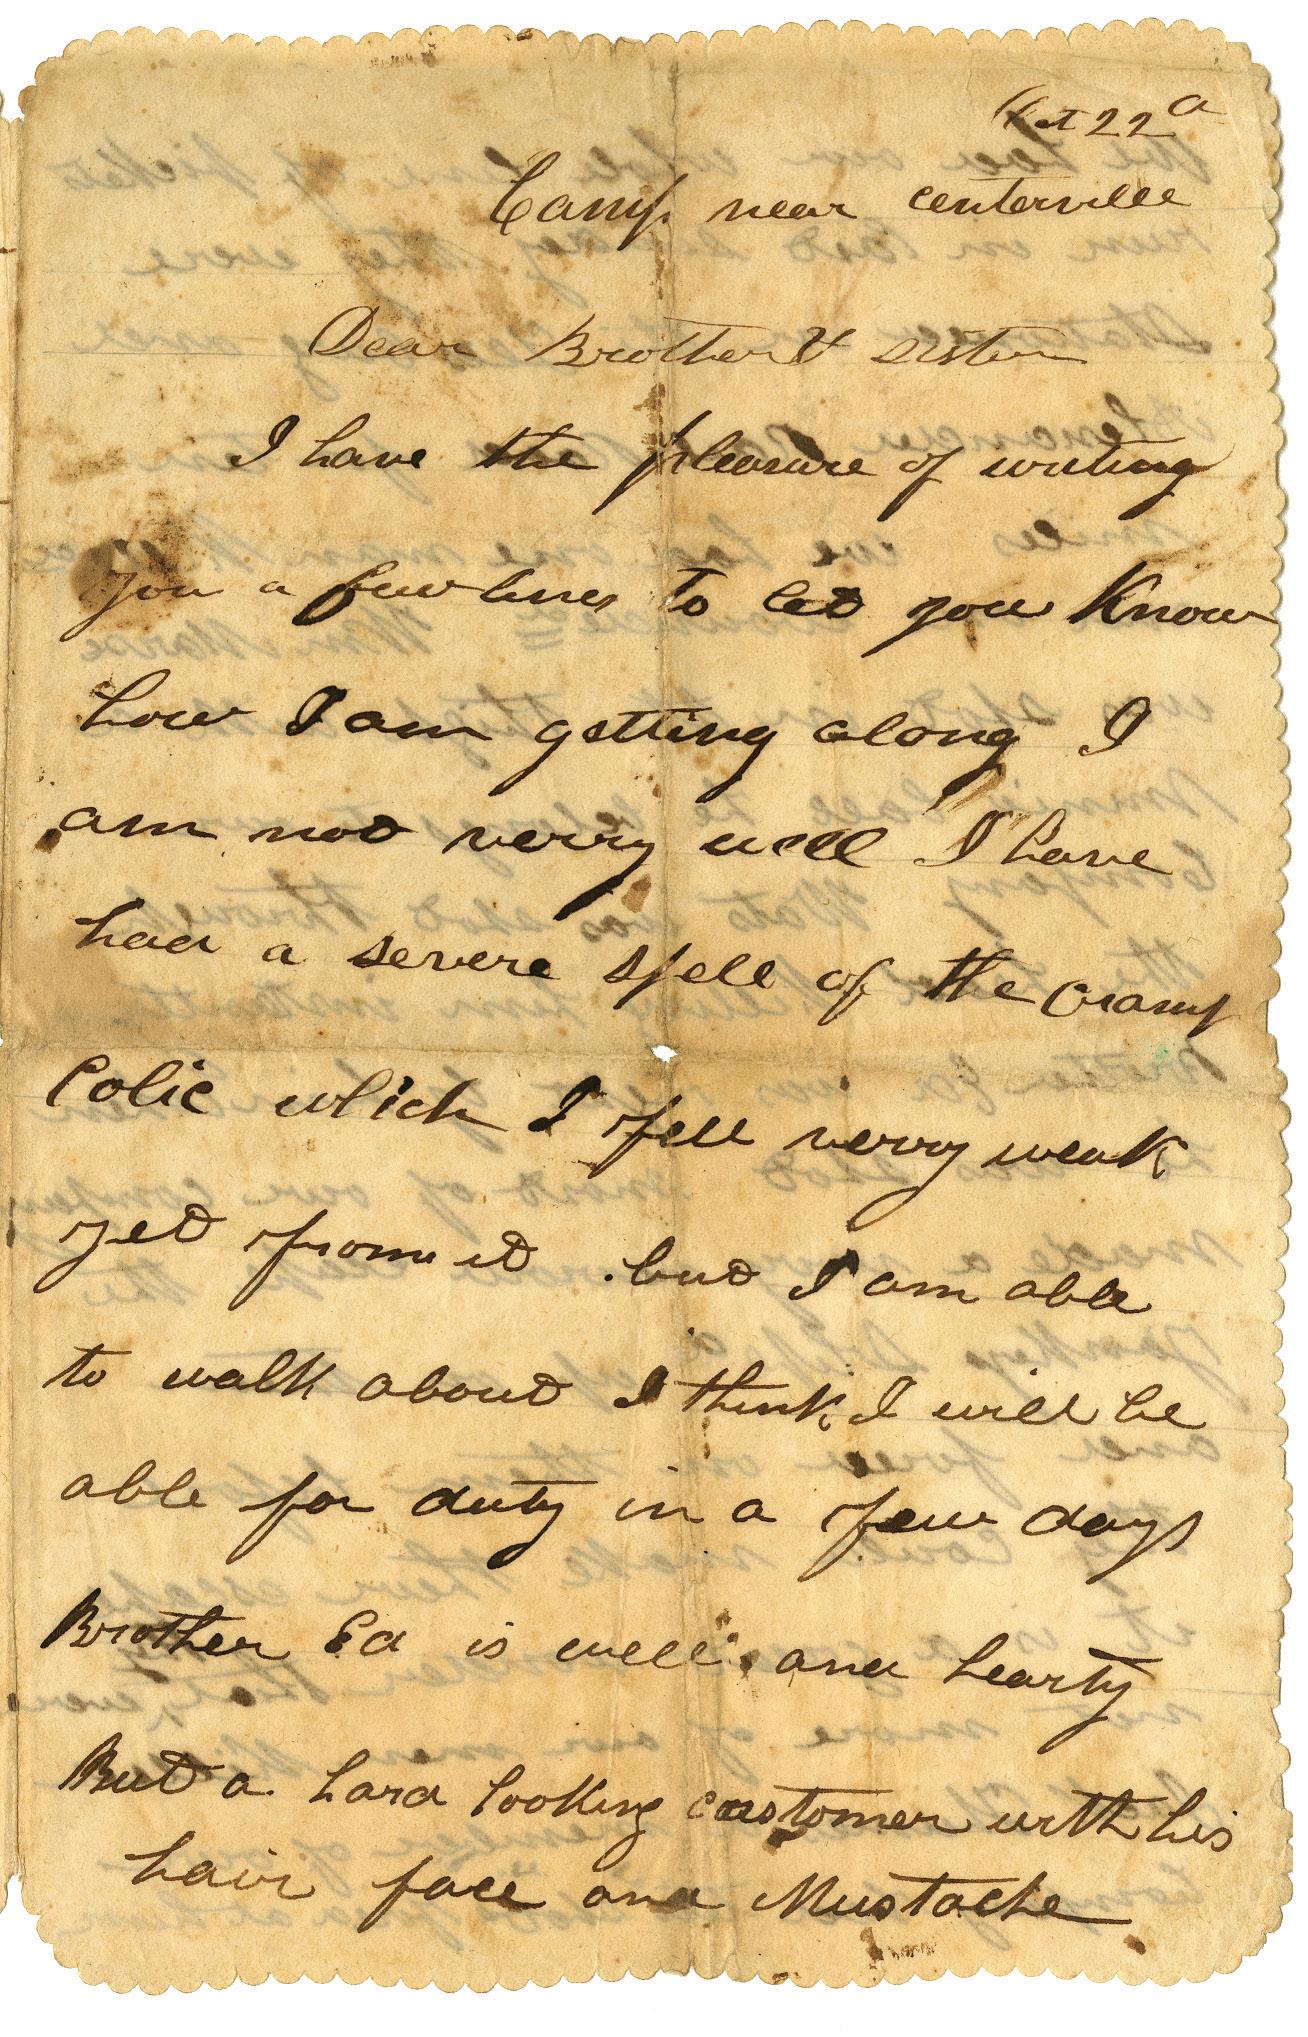 Oct 22d
Camp near centerville
Dear Brother & sister
I have the pleasure of writing
you a few lines to let you Know
how I am getting along I
am not verry well I have
had a severe spell of the cramp
Colic which I fell verry weak
yet from it but I am able
to walk about I think I will be
able for duty in a few days
Brother Ed is well and hearty
But a hard looking customer with his
hair face and Mustache